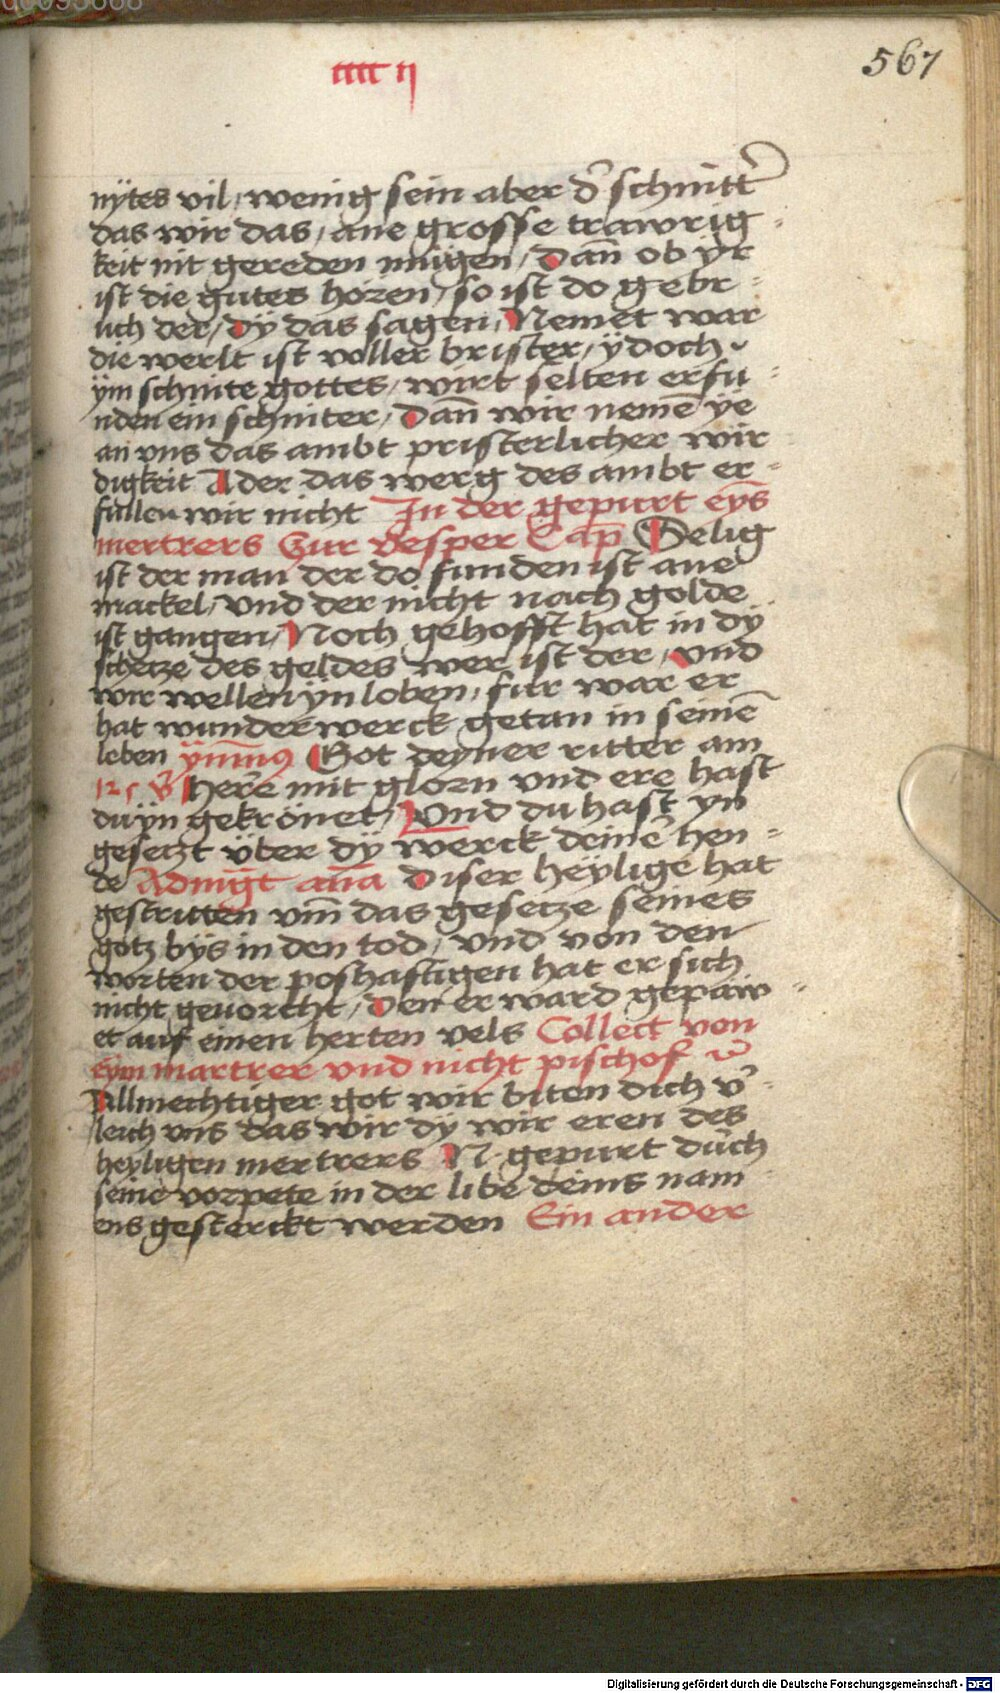 cccc ij
567
nÿtes vil, wenig sein aber d̉ schnitt̉
das wir das, ane grosse trawrig-
keit nit gereden mügen, Dañ ob ÿr
ist die gutes hören, so ist do gebr-
lich der, dÿ das sagen, Nemet war
die werlt ist voller brister, ÿdoch
ÿm schnite gottes, wirt selten erfu-
nden ein schniter, Dañ wir nemē ÿe
an vns das ambt pristerlicher wir-
digkeit Ader das werg des ambt er-
fullen wir nicht In der gepurt eÿs
mertrers Zur vesper Cap̄ Selig
ist der man der do funden ist ane
mackel, Vnd der nicht noch golde
ist gangen, Noch gehofft hat in dÿ
schetze des geldes wer ist der, vnd
wir wellen ÿn loben, fur war er
hat wunderwerck getan in seinē
leben ÿm̄nꝰ Got deyner ritter am
125 v̉ Herre mit glorn vnd ere hast
du ÿn gekrönet, Vnd du hast yn
gesetzt über dÿ werck deinē hen-
de Admḡt an̄a Diser heÿlige hat
gestritten vm̄ das gesetze seines
gotz bÿs in den tod, vnd von den
worten der poshaftigen hat er sich
nicht geuorcht, Den er ward gepaw-
et auf einen herten vels Collect von
eÿm martrer vnd nicht pischof
Allmechtiger got wir biten dich v̉-
leich vns das wir dÿ wir eren des
heyligen mertrers N. gepurt duch
seine vorpete in der libe deins nam
ens gesterckt werden Ein ander
Digitalisierung gefördert durch die Deutsche Forschungsgemeinschaft - DFG